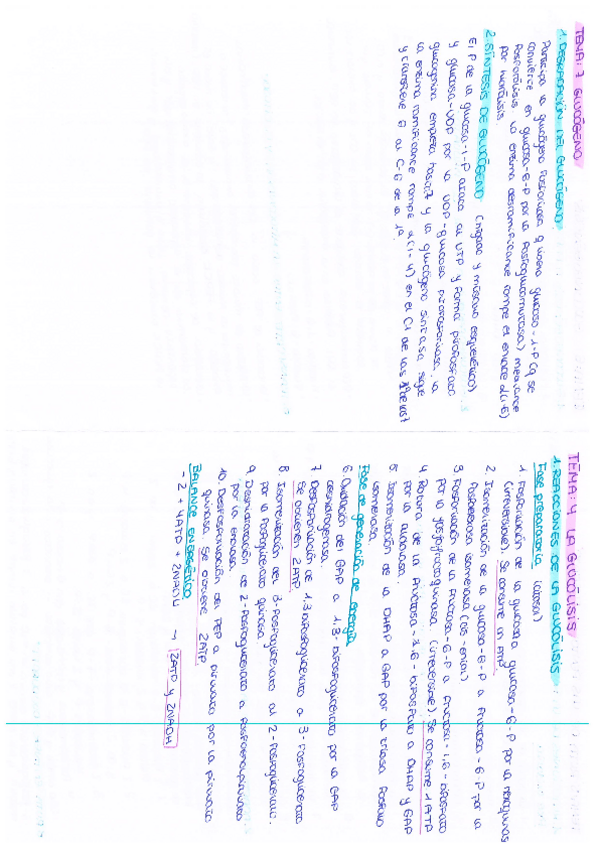 TEMA: 3 GLUCÓGENO
1. DEGRADACIÓN DEL GLUCÓGENO
Participa la glucógeno fosforilasa q libera glucosa-1-P (q se
convierte en glucosa-6-P por la fosfoglucomutasa) mediante
fosforólisis. La enzima desramificante rompe el enlace α(1-6)
por hidrólisis.
2. SÍNTESIS DE GLUCÓGENO (hígado y músculo esquelético)
El P de la glucosa-1-P ataca al UTP y forma pirofosfato
y glucosa-UDP por la UDP-glucosa pirofosforilasa. La
glucogenina empieza hasta 7 y la glucógeno sintasa sigue
la enzima ramificante rompe α(1-4) en el C1 de las
y transfiere 6 al C-6 de la 1ª.
TEMA: 4 LA GLUCÓLISIS
1. REACCIONES DE LA GLUCÓLISIS
Fase preparatoria (citosol)
1. Fosforilación de la glucosa a glucosa-6-P por la hexoquinasa
(irreversible). Se consume un ATP
2. Isomerización de la glucosa-6-P a fructosa-6-P por la
fosfohexosa isomerasa (cis-enol)
3. Fosforilación de la fructosa-6-P a fructosa-1,6-bifosfato
por la fosfofructoquinasa (irreversible). Se consume 1 ATP
4. Rotura de la fructosa-1,6-bifosfato a DHAP y GAP
por la aldolasa.
5. Isomerización de la DHAP a GAP por la triosa fosfato
isomerasa.
Fase de generación de energía
6. Oxidación del GAP a 1,3-bifosfoglicerato por la GAP
deshidrogenasa.
7. Desfosforilación de 1,3 bifosfoglicerato a 3-fosfoglicerato
Se obtienen 2 ATP
8. Isomerización del 3-fosfoglicerato al 2-fosfoglicerato.
por la fosfoglicerato quinasa
9. Deshidratación de 2-fosfoglicerato a fosfoenolpiruvato
por la enolasa.
10. Desfosforilación del PEP a piruvato por la piruvato
quinasa. Se obtiene 2ATP
BALANCE ENERGÉTICO
- 2 + 4ATP + 2NADH → 2ATP y 2NADH